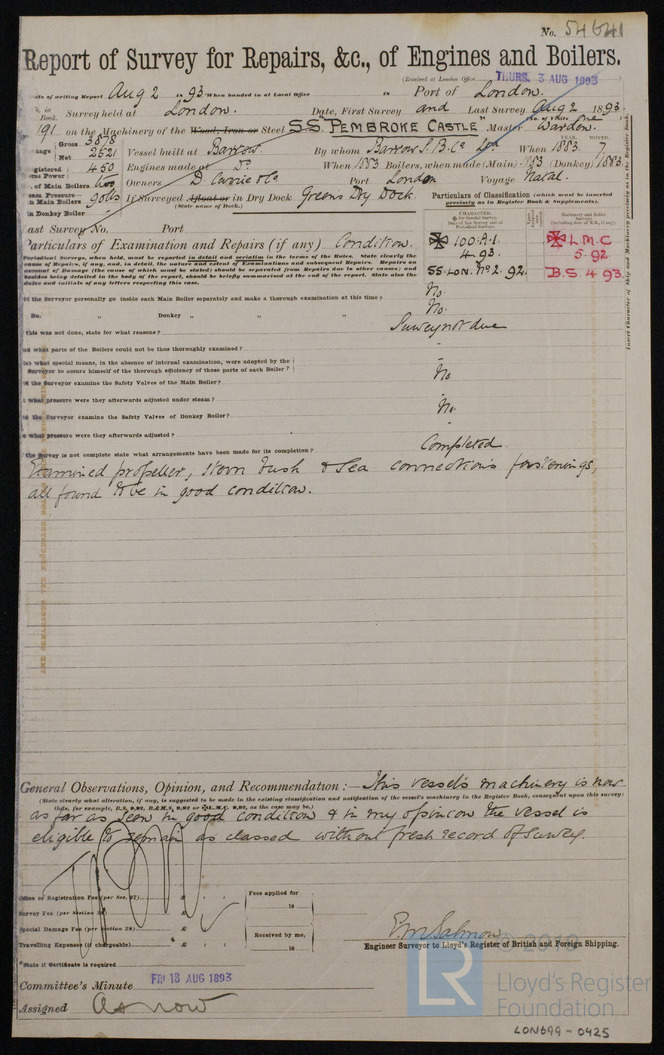 No. 54641
Report of Survey for Repairs, &c., of Engines and Boilers.
(Received at London Office THURS. 3 AUG 1893
of writing Report Aug 2 1893 When handed in at Local Office 18 Port of London.
in Book. Survey held at London. Date, First Survey and Last Survey Aug 2 1893.
191 on the Machinery of the Wood, Iron or Steel S.S. "PEMBROKE CASTLE" Master Warden.
Gross 3878
Net 2521 Vessel built at Barrow. By whom Barrow S. B. Co Ltd When YEAR. 1883 MONTH. 7
Registered 450 Engines made at Do. When 1883 Boilers, when made (Main) 83 (Donkey) 1883
of Main Boilers Owners D. Currie & Co Port London Voyage Naval.
Main Boilers 90 lbs If Surveyed Afloat or in Dry Dock Greens Dry Dock
(State name of Dock.)
in Donkey Boiler
Last Survey No. Port
Particulars of Classification (which must be inserted precisely as in Register Book & Supplements).
CHARACTER.
100.A.1.
4.93.
SS. LON. No 2. 92.
L.M.C
5.92
B.S. 4.93.
Particulars of Examination and Repairs (if any) Condition.
Periodical Surveys, when held, must be reported in detail and seriatim in the terms of the Rules. State clearly the cause of Repairs, if any, and, in detail, the nature and extent of Examinations and subsequent Repairs. Repairs on account of Damage (the cause of which must be stated) should be separated from Repairs due to other causes; and besides being detailed in the body of the report, should be briefly summarised at the end of the report. State also the dates and initials of any letters respecting this case.
Did the Surveyor personally go inside each Main Boiler separately and make a thorough examination at this time? No.
Do. Donkey " " " No.
this was not done, state for what reasons? Survey not due
what parts of the Boilers could not be thoroughly examined? -
what special means, in the absence of internal examination, were adopted by the
Surveyor to assure himself of the thorough efficiency of those parts of each Boiler? -
the Surveyor examine the Safety Valves of the Main Boiler? No
what pressure were they afterwards adjusted under steam? -
the Surveyor examine the Safety Valves of Donkey Boiler? No.
what pressure were they afterwards adjusted? -
the Survey is not complete state what arrangements have been made for its completion? Completed.
Examined propeller, stern bush & sea connections fastenings,
all found to be in good condition.
General Observations, Opinion, and Recommendation:— This vessels machinery is now
(State clearly what alteration, if any, is suggested to be made in the existing classification and notification of the vessel's machinery in the Register Book, consequent upon this survey:
as far as seen in good condition & in my opinion the vessel is
eligible to remain as classed without fresh record of survey.
Office or Registration Fee (per Sec. 27) £ : : Fees applied for
Survey Fee (per Section 28) £ : : 18
Special Damage Fee (per Section 28) £ : : Received by me,
Travelling Expenses (if chargeable) £ : : 18
E M Salmon
Engineer Surveyor to Lloyd's Register of British and Foreign Shipping.
*State if Certificate is required
Committee's Minute FRI 18 AUG 1893
Assigned As now
© 2018
LR
Lloyd's Register
Foundation
LON699-0425